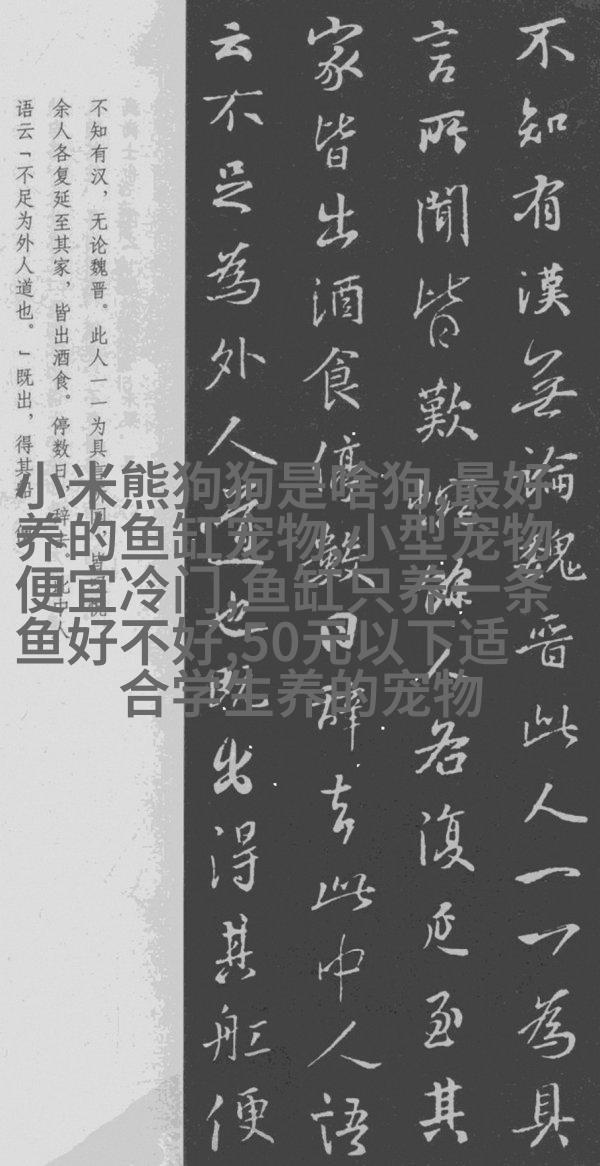 不知有漢無論魏晋此人一一為具
言所聞皆歎惋餘人各復延至其
家皆出酒食停數日辭去此中人語
云不足為外人道也既出得其船便
不知有汉，无论魏晋。此人一一为具
余人各复延至其家，皆出酒食。停数日，辞去。此中人
语云「不足为外人道也。」既出，得其船
小米熊狗狗是啥狗,最好
养的鱼缸宠物,小型宠物
便宜冷门,鱼缸只养一条
鱼好不好,50元以下适
合学生养的宠物